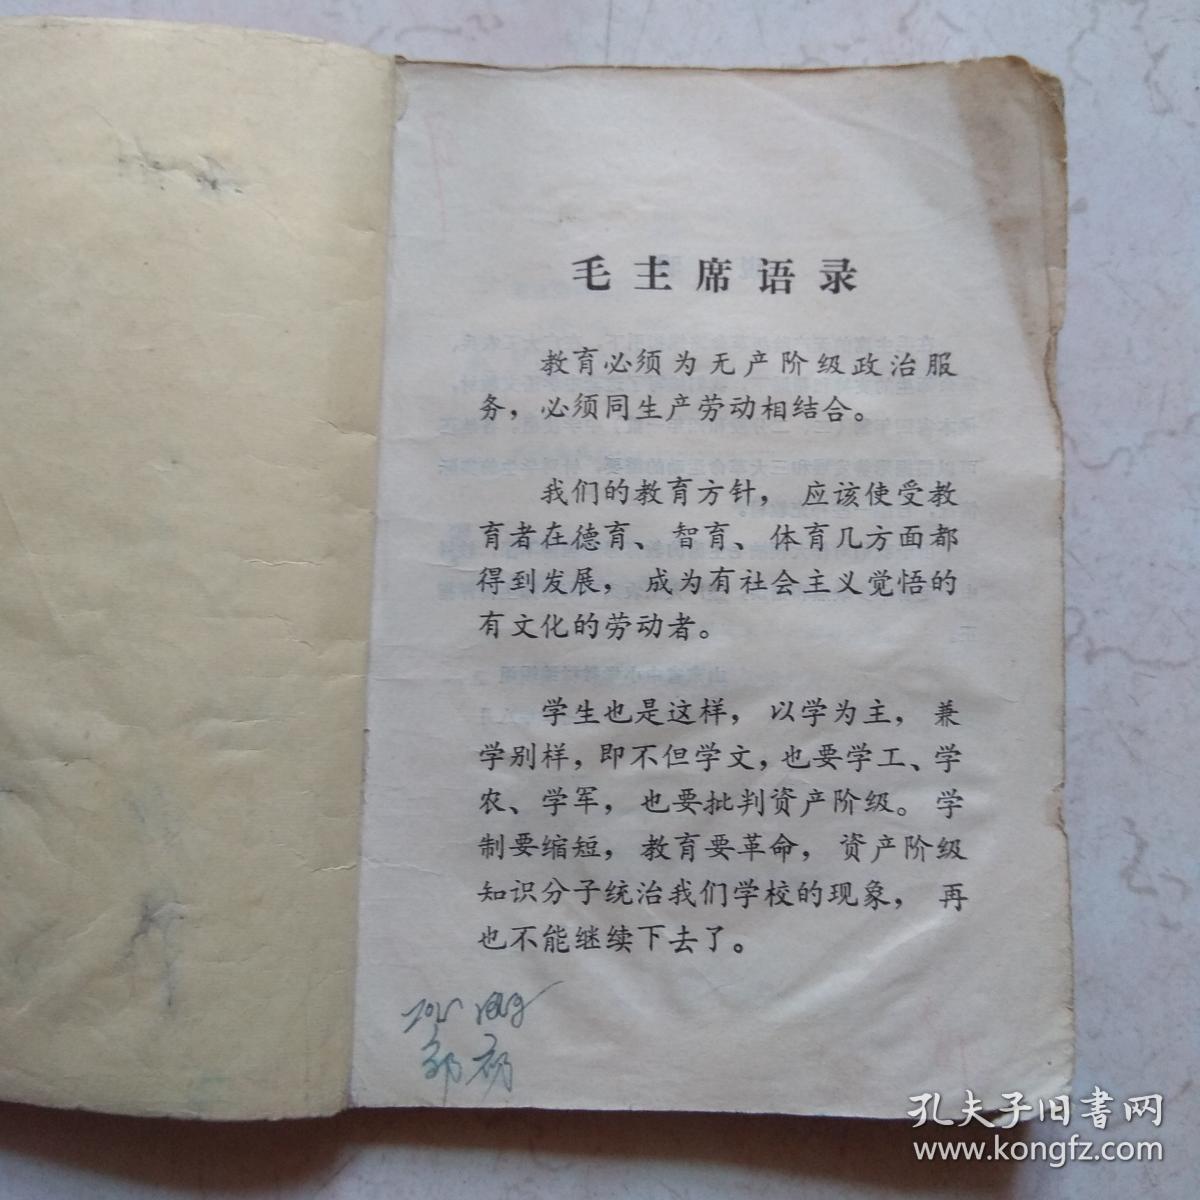 毛主席语录
教育必须为无产阶级政治服
务，必须同生产劳动相结合。
我们的教育方针，应该使受教
育者在德育、智育、体育几方面都
得到发展，成为有社会主义觉悟的
有文化的劳动者。
学生也是这样，以学为主，兼
学别样，即不但学文，也要学工、学
农、学军，也要批判资产阶级。学
制要缩短，教育要革命，资产阶级
知识分子统治我们学校的现象，再
也不能继续下去了。
孔夫子旧书网
www.kongfz.com